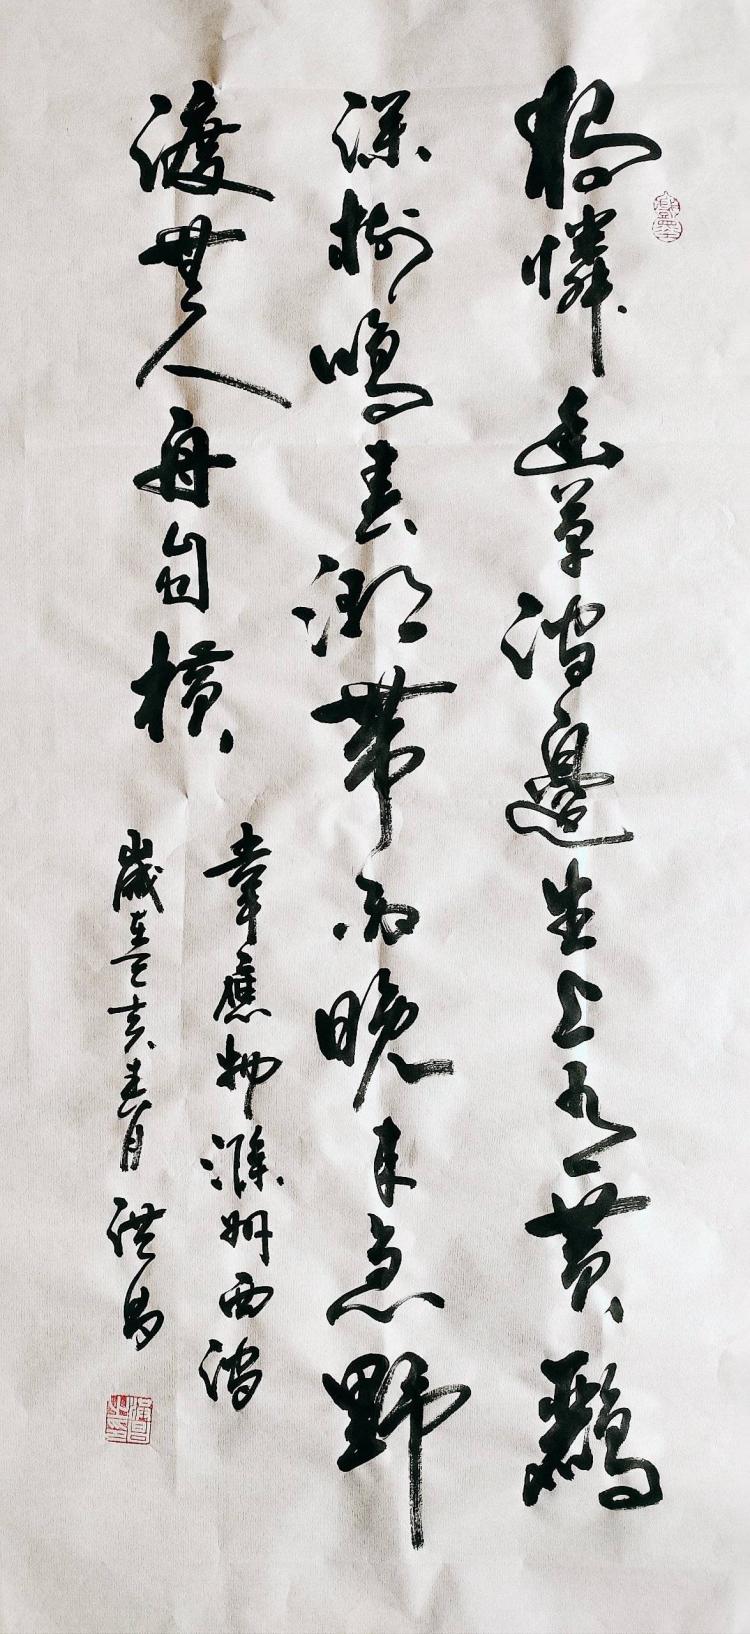 獨憐幽草澗邊生上有黄鸝
深樹鳴春潮帶雨晚来急野
渡無人舟自橫
韋應物滁州西澗
歲在癸亥春月洪昌